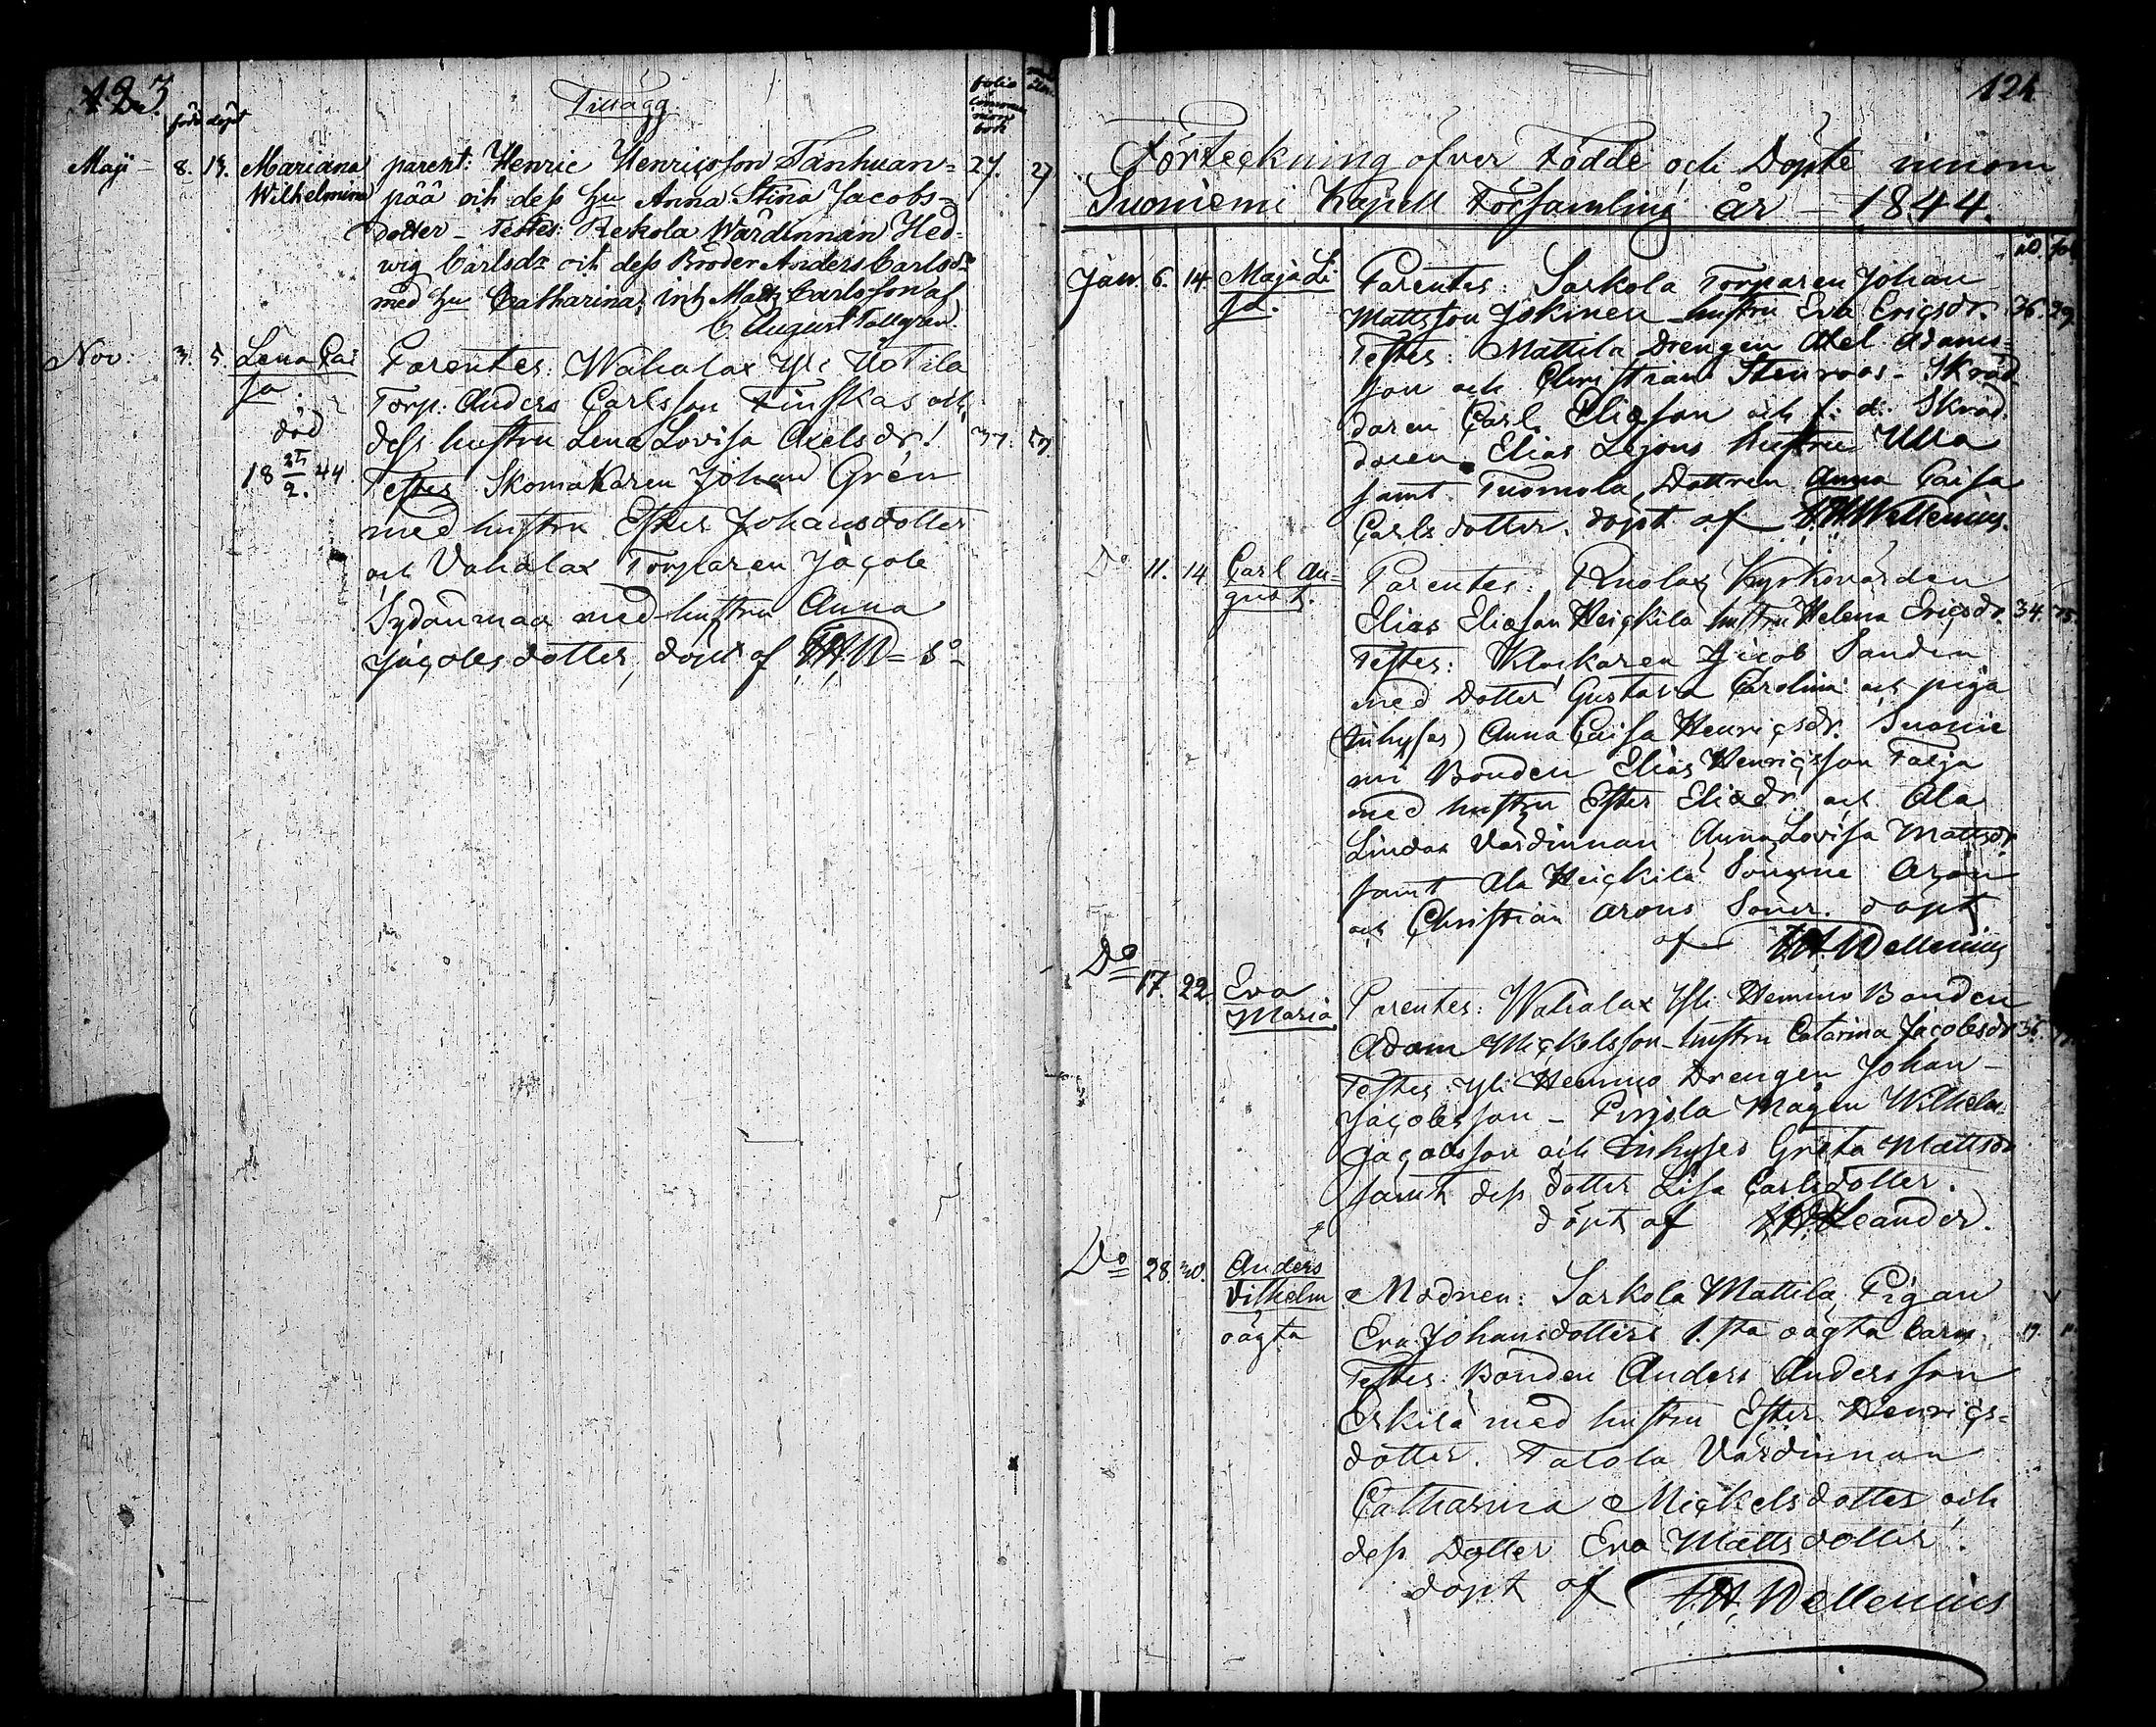 123
Tillägg
född döpt
folio
commu
nion
bok
Maji - 8. 19. Mariana parent: Henric Henricsson Tanhuan= 27. 27
Wilhelmina pää och dess Hu Anna Stina Jacobs=
dotter - Testes: Rekola Wärdinnan Hed=
wig Carlsdr och dess Broder Anders Carlsson
med Hu Catharina, inh Matts Carlsson af
C. August Tallgren.
Nov: 3. 5. Lena Cai Parentes: Wahalax Yli Uotila
sa. Torp: Anders Carlsson Finskas och
död dess hustru Lena Lovisa Axelsdr. 37. 57
18 25/2. 44. Testes Skomakaren Johan Grén
med hustru Ester Johansdotter
och Vahalax Torparen Jacob
Sydänmaa med hustru Anna
Jacobsdotter, döpt af
124
Förteckning öfver Födde och Döpte innom
Suoniemi Kapell Församling år - 1844.
Jan. 6. 14. Maja Li Parentes: Sarkola Torparen Johan
sa. Mattsson Jokinen - hustru Eva Ericsdr. 36. 29.
Testes: Mattila Drengen Axel Adams=
son och Christian Stenroos - Skräd
daren Carl Eliasson och f: d: Skräd
daren Elias Lejons hustru Ulla
samt Tuomola Dottren Anna Caisa
Carlsdotter. döpt af F.H. Wellenius.
Do 11. 14 Carl Au= Parentes: Kuolax Kyrkovärden
gust. Elias Eliasson Heickilä hustru Helena Ericsdr. 34. 75.
Testes: Klockaren Jacob Sandin
med Dotter Gustava Carolina och piga
(Inhyses) Anna Caisa Henricsdr. Suonie
mi Bonden Elias Henricsson Tarja
med hustru Ester Eliædr. och Ala
Lindax Värdinnan Anna Lovisa Mattsdr
samt Ala Heickilä Sönerne Aron
och Christian Arons Söner. döpt
af F.H. Wellenius
Do 17. 22 Eva Parentes: Wahalax Yli Hemmo Bonden
Maria. Adam Mickelsson - hustru Catarina Jacobsdr 36.
Testes: Yli Hemmo Drengen Johan -
Jacobsson - Pirjola Mågen Wilhelm
Jacobsson och Inhyses Greta Mattsdr
samt dess Dotter Lisa Carlsdotter.
döpt af Leander.
Do 28. 30. Anders Modren: Sarkola Mattila Pigan
Vilhelm Eva Johansdotters 1.sta oägta barn. 19.
oägta Testes: Bonden Anders Andersson
Erkilä med hustru Ester Henrics=
dotter. Talola Värdinnan
Catharina Mickelsdotter och
dess Dotter Eva Mattsdotter.
döpt af F.H. Wellenius